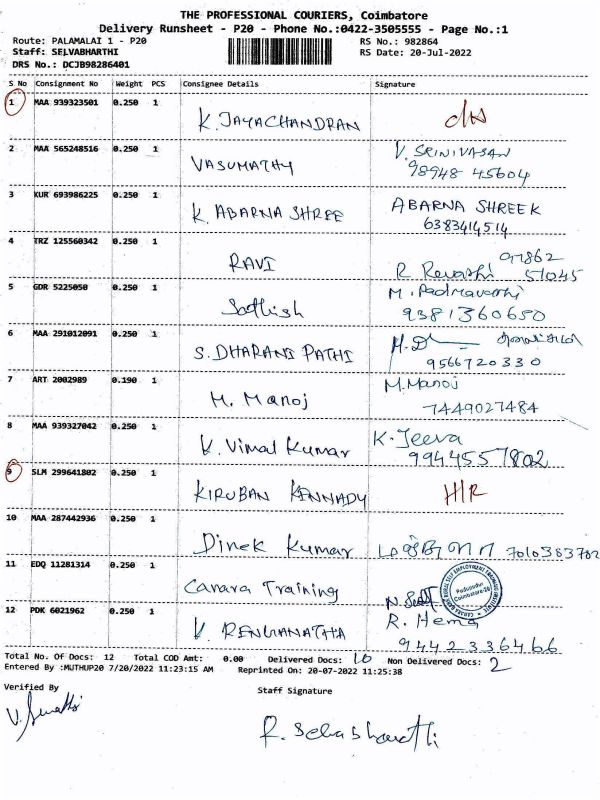 THE PROFESSIONAL COURIERS, Coimbatore
Delivery Runsheet - P20 - Phone No.:0422-3505555 - Page No.:1
Route: PALAMALAI 1 - P20
RS No.: 982864
Staff: SELVABHARTHI
RS Date: 20-Jul-2022
DRS No.: DCJB98286401
S No Consignment No Weight PCS Consignee Details Signature
1 MAA 939323501 0.250 1 K. JAYACHANDRAN
2 MAA 565248516 0.250 1 VASUMATHY V. SRINIVASAN
98948 45604
3 KUR 693986225 0.250 1 K. ABARNA SHREE ABARNA SHREE K
6383414514
4 TRZ 125560342 0.250 1 RAVI R Revathi
51045
5 GDR 5225050 0.250 1 Sathish M. Padmavathi
9381360650
6 MAA 291012091 0.250 1 S. DHARANI PATHI
9566720330
7 ART 2002989 0.190 1 M. Manoj M. Manoj
7449027484
8 MAA 939327042 0.250 1 K. Vimal Kumar K. Jeeva
9944557802
9 SLM 299641802 0.250 1 KIRUBAN KENNADY H/R
10 MAA 287442936 0.250 1 Dinek Kumar 7010383702
11 EDQ 11281314 0.250 1 Canara Training
12 PDK 6021962 0.250 1 V. RENGANATHA R. Hema
9442336466
Total No. Of Docs: 12 Total COD Amt: 0.00 Delivered Docs: 10 Non Delivered Docs: 2
Entered By :MUTHUP20 7/20/2022 11:23:15 AM Reprinted On: 20-07-2022 11:25:38
Verified By
Staff Signature